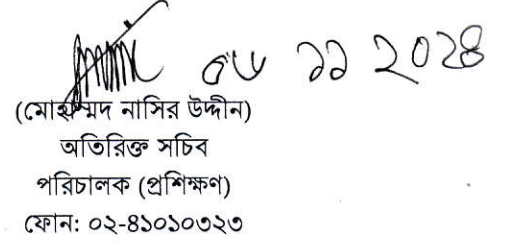 ০৬ ১১ ২০২৪
(মোহাম্মদ নাসির উদ্দীন)
অতিরিক্ত সচিব
পরিচালক (প্রশিক্ষণ)
ফোন: ০২-৪১০১০৩২৩